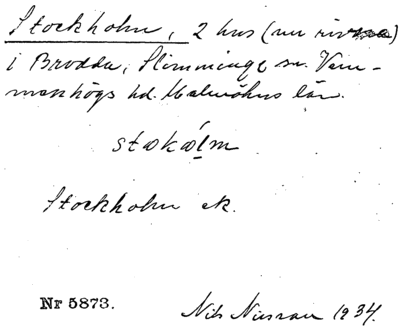 Stockholm, 2 hus (nu rivna)
i Brodda, Slimminge sn. Vem-
menhögs hd. Malmöhus län.
stɷkɷ́lm
Stockholm ek.
Nr 5873.
Nils Nilsson 1934.